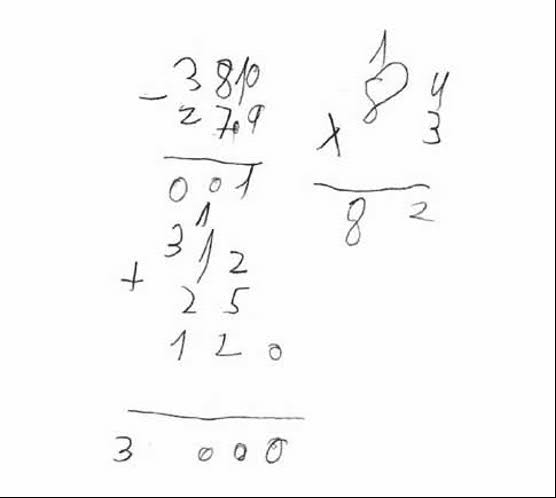 - 3 8 10
2 7 9
0 0 1
1
+ 3 1 2
2 5
1 2 0
3 0 0 0
1
8 4
x 3
8 2